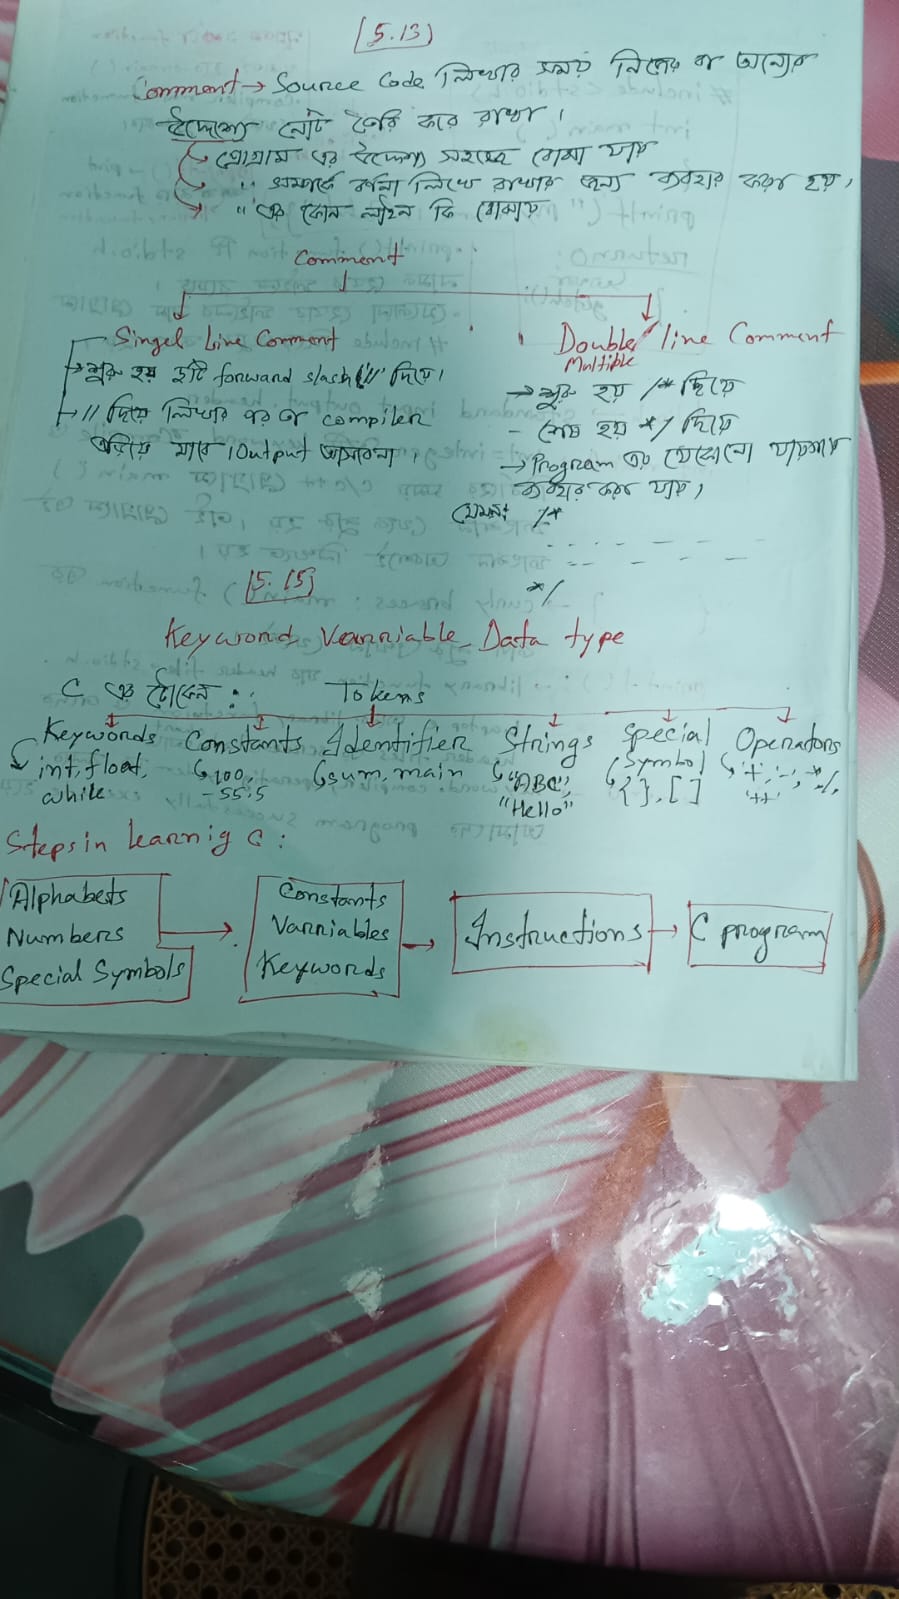 [5.13]
Comment → Source Code লিখার সময় নিজের বা অন্যের
উদ্দেশ্যে নোট তৈরি করে রাখা।
প্রোগ্রাম এর উদ্দেশ্য সহজে বোঝা যায়
" সম্পর্কে বর্ণনা লিখে রাখার জন্য ব্যবহার করা হয়,
" এর কোন লাইন কি বোঝায়
Comment
Singel Line Comment
→ শুরু হয় ২টি forward slash '//' দিয়ে।
→ // দিয়ে লিখার পর তা compiler
এড়িয়ে যাবে। Output আসবেনা।
Double/ line Comment
Multiple
→ শুরু হয় /* দিয়ে
- শেষ হয় */ দিয়ে
→ Program এর যেকোনো যায়গায়
ব্যবহার করা যায়,
যেমনঃ /*
*/
[5.15]
Keyword, Varriable, Data type
C এর টোকেন : Tokens
Keywords Constants Identifier Strings Special Operators
Symbol
int, float, 100, sum, main "ABC", { }, [ ] +, -, *,
while -55.5 "Hello" ++, %,
Steps in learnig C :
Alphabets
Numbers
Special Symbols
Constants
Varriables
Keywords
Instructions
C program